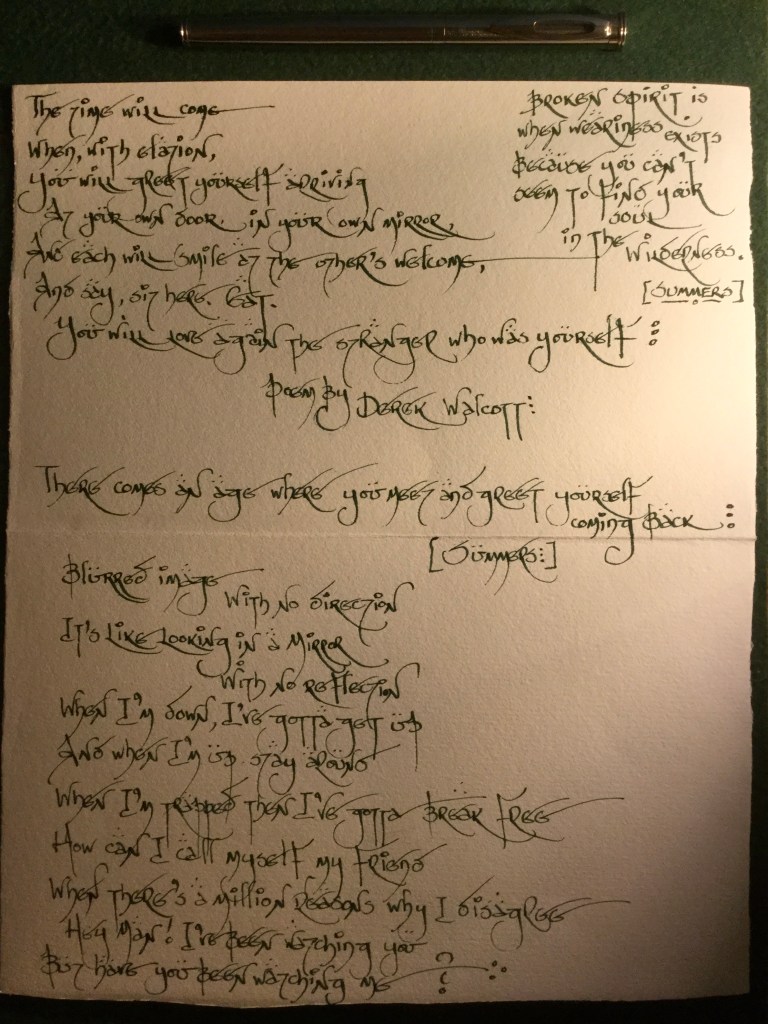 The time will come
When, with elation,
You will greet yourself arriving
At your own door, in your own mirror,
And each will smile at the other's welcome,
And say, sit here. Eat.
You will love again the stranger who was yourself
Poem By Derek Walcott:
Broken Spirit is
when weariness exists
Because you can't
seem to find your
soul
in the Wilderness.
[Summers]
There comes an age where you meet and greet yourself
coming Back
[Summers:]
Blurred image
With no direction
It's Like Looking in a Mirror
With no reflection
When I'm down, I've gotta get up
And when I'm up stay around
When I'm trapped then I've gotta Break Free
How can I call myself my friend
When there's a million reasons why I disagree
Hey Man! I've Been watching you
But have you Been watching me ?